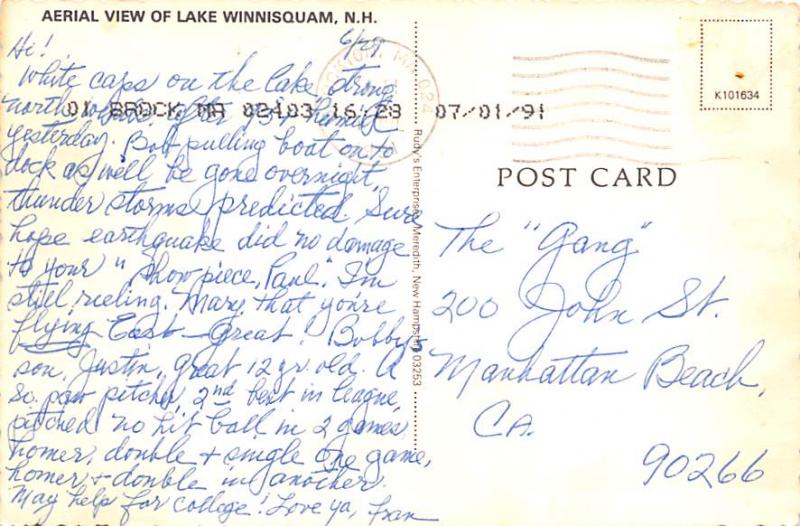 AERIAL VIEW OF LAKE WINNISQUAM, N.H.
6/29
Hi!
White caps on the lake strong
north
01 BROCK MA 02403 16:23 07/01/91
yesterday. Bob pulling boat on to
dock as we'll be gone overnight,
thunder storms predicted. Sure
hope earthquake did no damage
to your "Show piece, Paul". I'm
still reeling. Mary, that you're
flying East - Great! Bobby's
son, Justin, great 12 yr. old. A
so. paw pitcher, 2nd best in league,
pitched no hit ball in 2 games
homer, double + single one game,
homer + double in another.
May help for college! Love ya, Fran
Rudy's Enterprise, Meredith, New Hampshire 03253
K101634
POST CARD
The "Gang"
200 John St.
Manhattan Beach,
CA.
90266